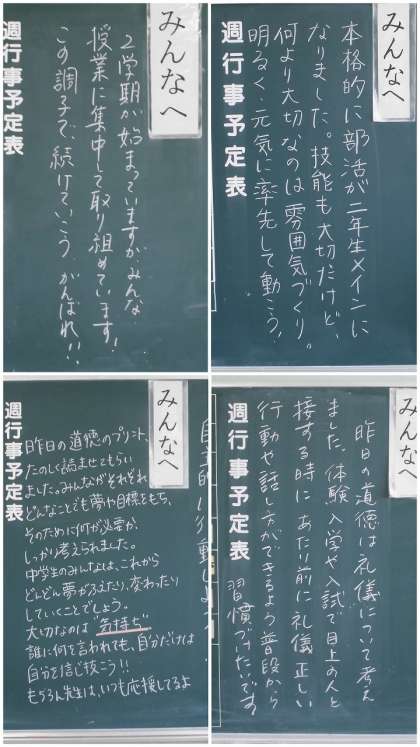 みんなへ
2学期が始まっていますが、みんな
授業に集中して取り組めています！
この調子で、続けていこう。がんばれ！！
週行事予定表
みんなへ
本格的に部活が二年生メインに
なりました。技能も大切だけど、
何より大切なのは雰囲気づくり。
明るく、元気に率先して動こう！
週行事予定表
みんなへ
昨日の道徳のプリント、
たのしく読ませてもらい
ました。みんながそれぞれ
どんなことでも夢や目標をもち、
そのために何が必要か、
しっかり考えられました。
中学生のみんなは、これから
どんどん夢がふえたり、変わったり
していくことでしょう。
大切なのは"気持ち"
誰に何を言われても、自分だけは
自分を信じ抜こう！！
もちろん先生は、いつも応援してるよ
週行事予定表
みんなへ
昨日の道徳は礼儀について考え
ました。体験入学や入試で目上の人と
接する時に あたり前に礼儀正しい
行動や話し方ができるよう普段から
習慣づけたいです
週行事予定表